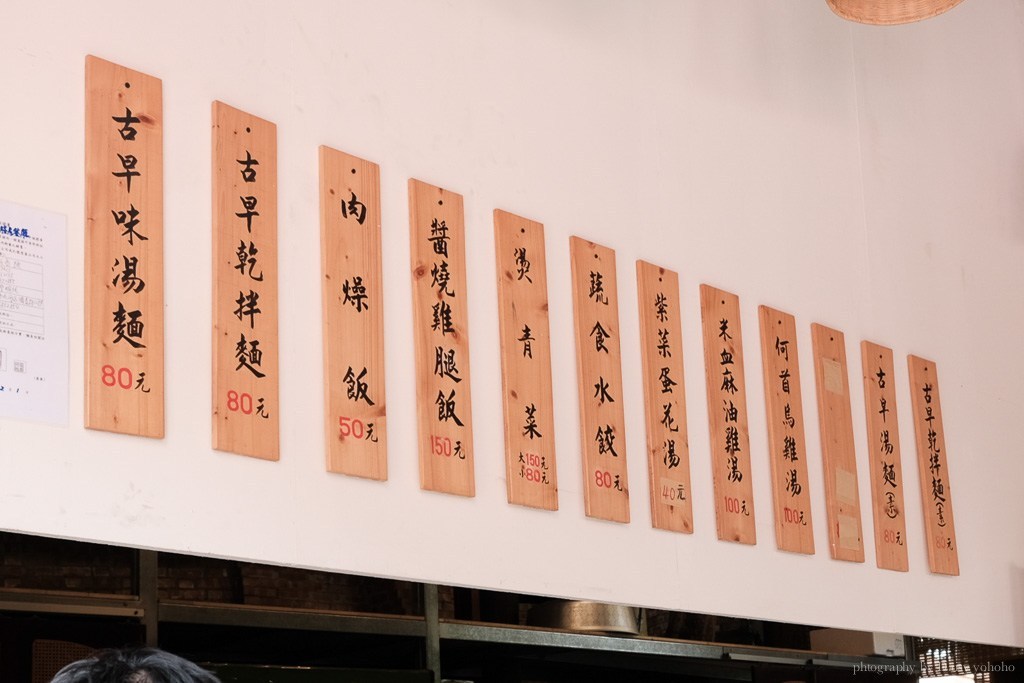 古早味湯麵
80元
古早乾拌麵
80元
肉燥飯
50元
醬燒雞腿飯
150元
燙青菜
大150元
小80元
蔬食水餃
80元
紫菜蛋花湯
40元
米血麻油雞湯
100元
何首烏雞湯
100元
古早湯麵(素)
80元
古早乾拌麵(素)
80元
phtography by yohoho